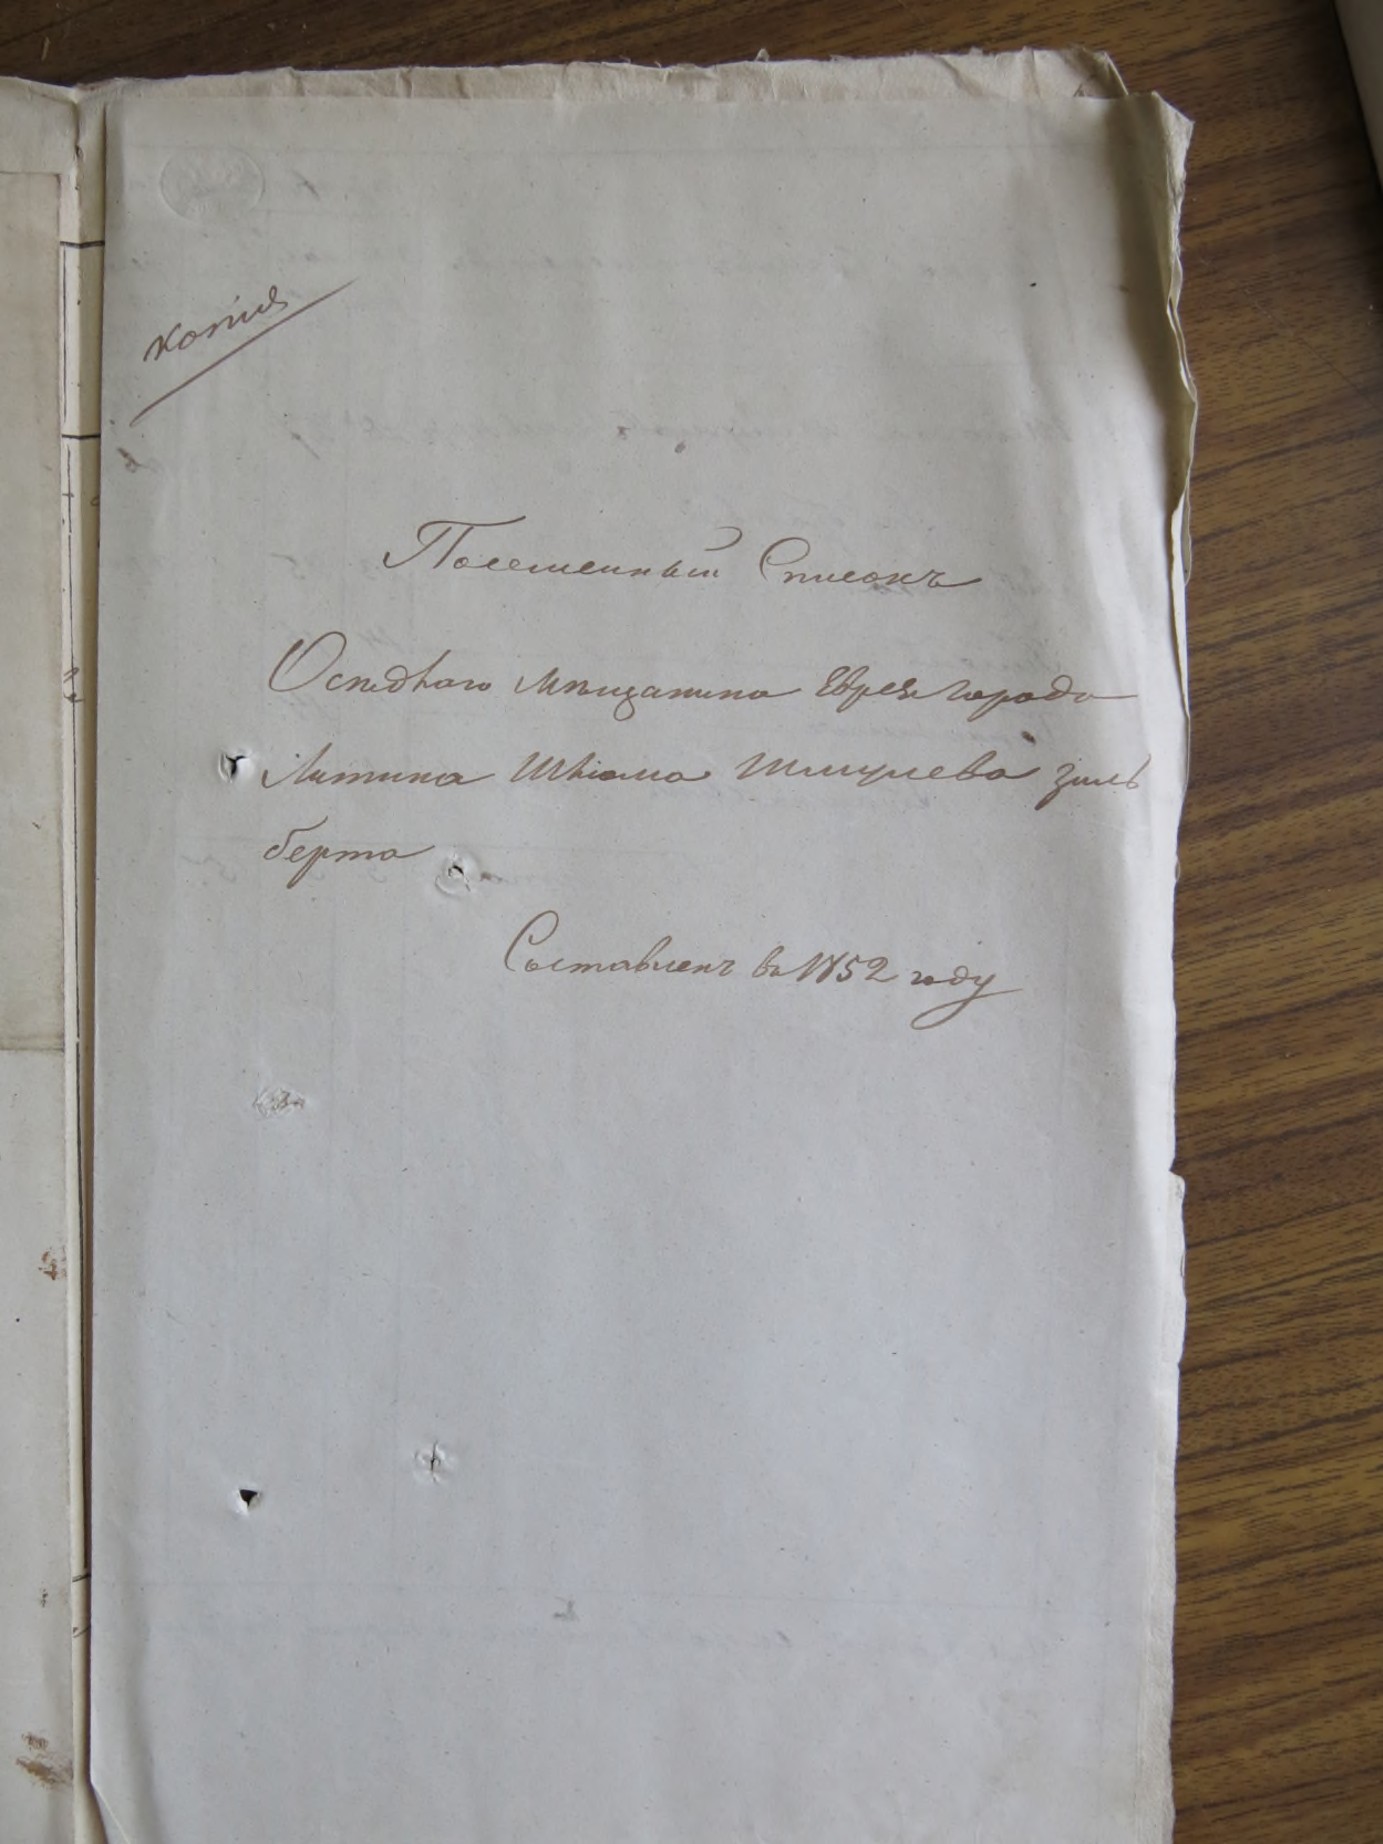 копія
Посемейный Списокъ
Осѣдлаго мѣщанина Еврея города
Литина Шлiомо Шмулева Зиль
берта
Составленъ въ 1852 году